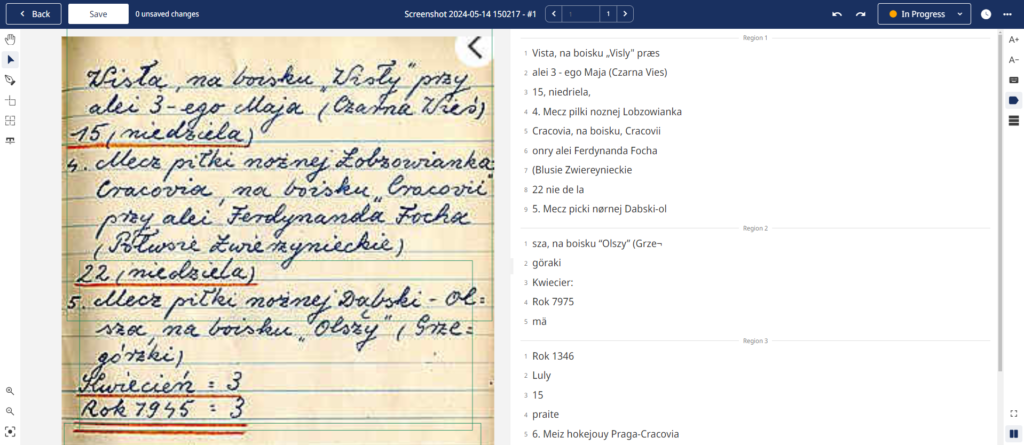 Back
Save
0 unsaved changes
Screenshot 2024-05-14 150217 - #1
1
1
In Progress
Wisła, na boisku „Wisły” przy
alei 3-ego Maja (Czarna Wieś)
15 (niedziela)
4. Mecz piłki nożnej Łobzowianka
Cracovia, na boisku „Cracovii”
przy alei Ferdynanda Focha
(Półwsie Zwierzynieckie)
22 (niedziela)
5. Mecz piłki nożnej Dąbski - Ol=
sza, na boisku „Olszy” (Grze=
górzki)
Kwiecień = 3
Rok 1945 = 3
Region 1
1 Vista, na boisku „Visly” præs
2 alei 3 - ego Maja (Czarna Vies)
3 15, niedriela,
4 4. Mecz pilki noznej Lobzowianka
5 Cracovia, na boisku, Cracovii
6 onry alei Ferdynanda Focha
7 (Blusie Zwiereynieckie
8 22 nie de la
9 5. Mecz picki nørnej Dabski-ol
Region 2
1 sza, na boisku “Olszy” (Grze¬
2 göraki
3 Kwiecier:
4 Rok 7975
5 mä
Region 3
1 Rok 1346
2 Luly
3 15
4 praite
5 6. Meiz hokejouy Praga-Cracovia
A+
A-